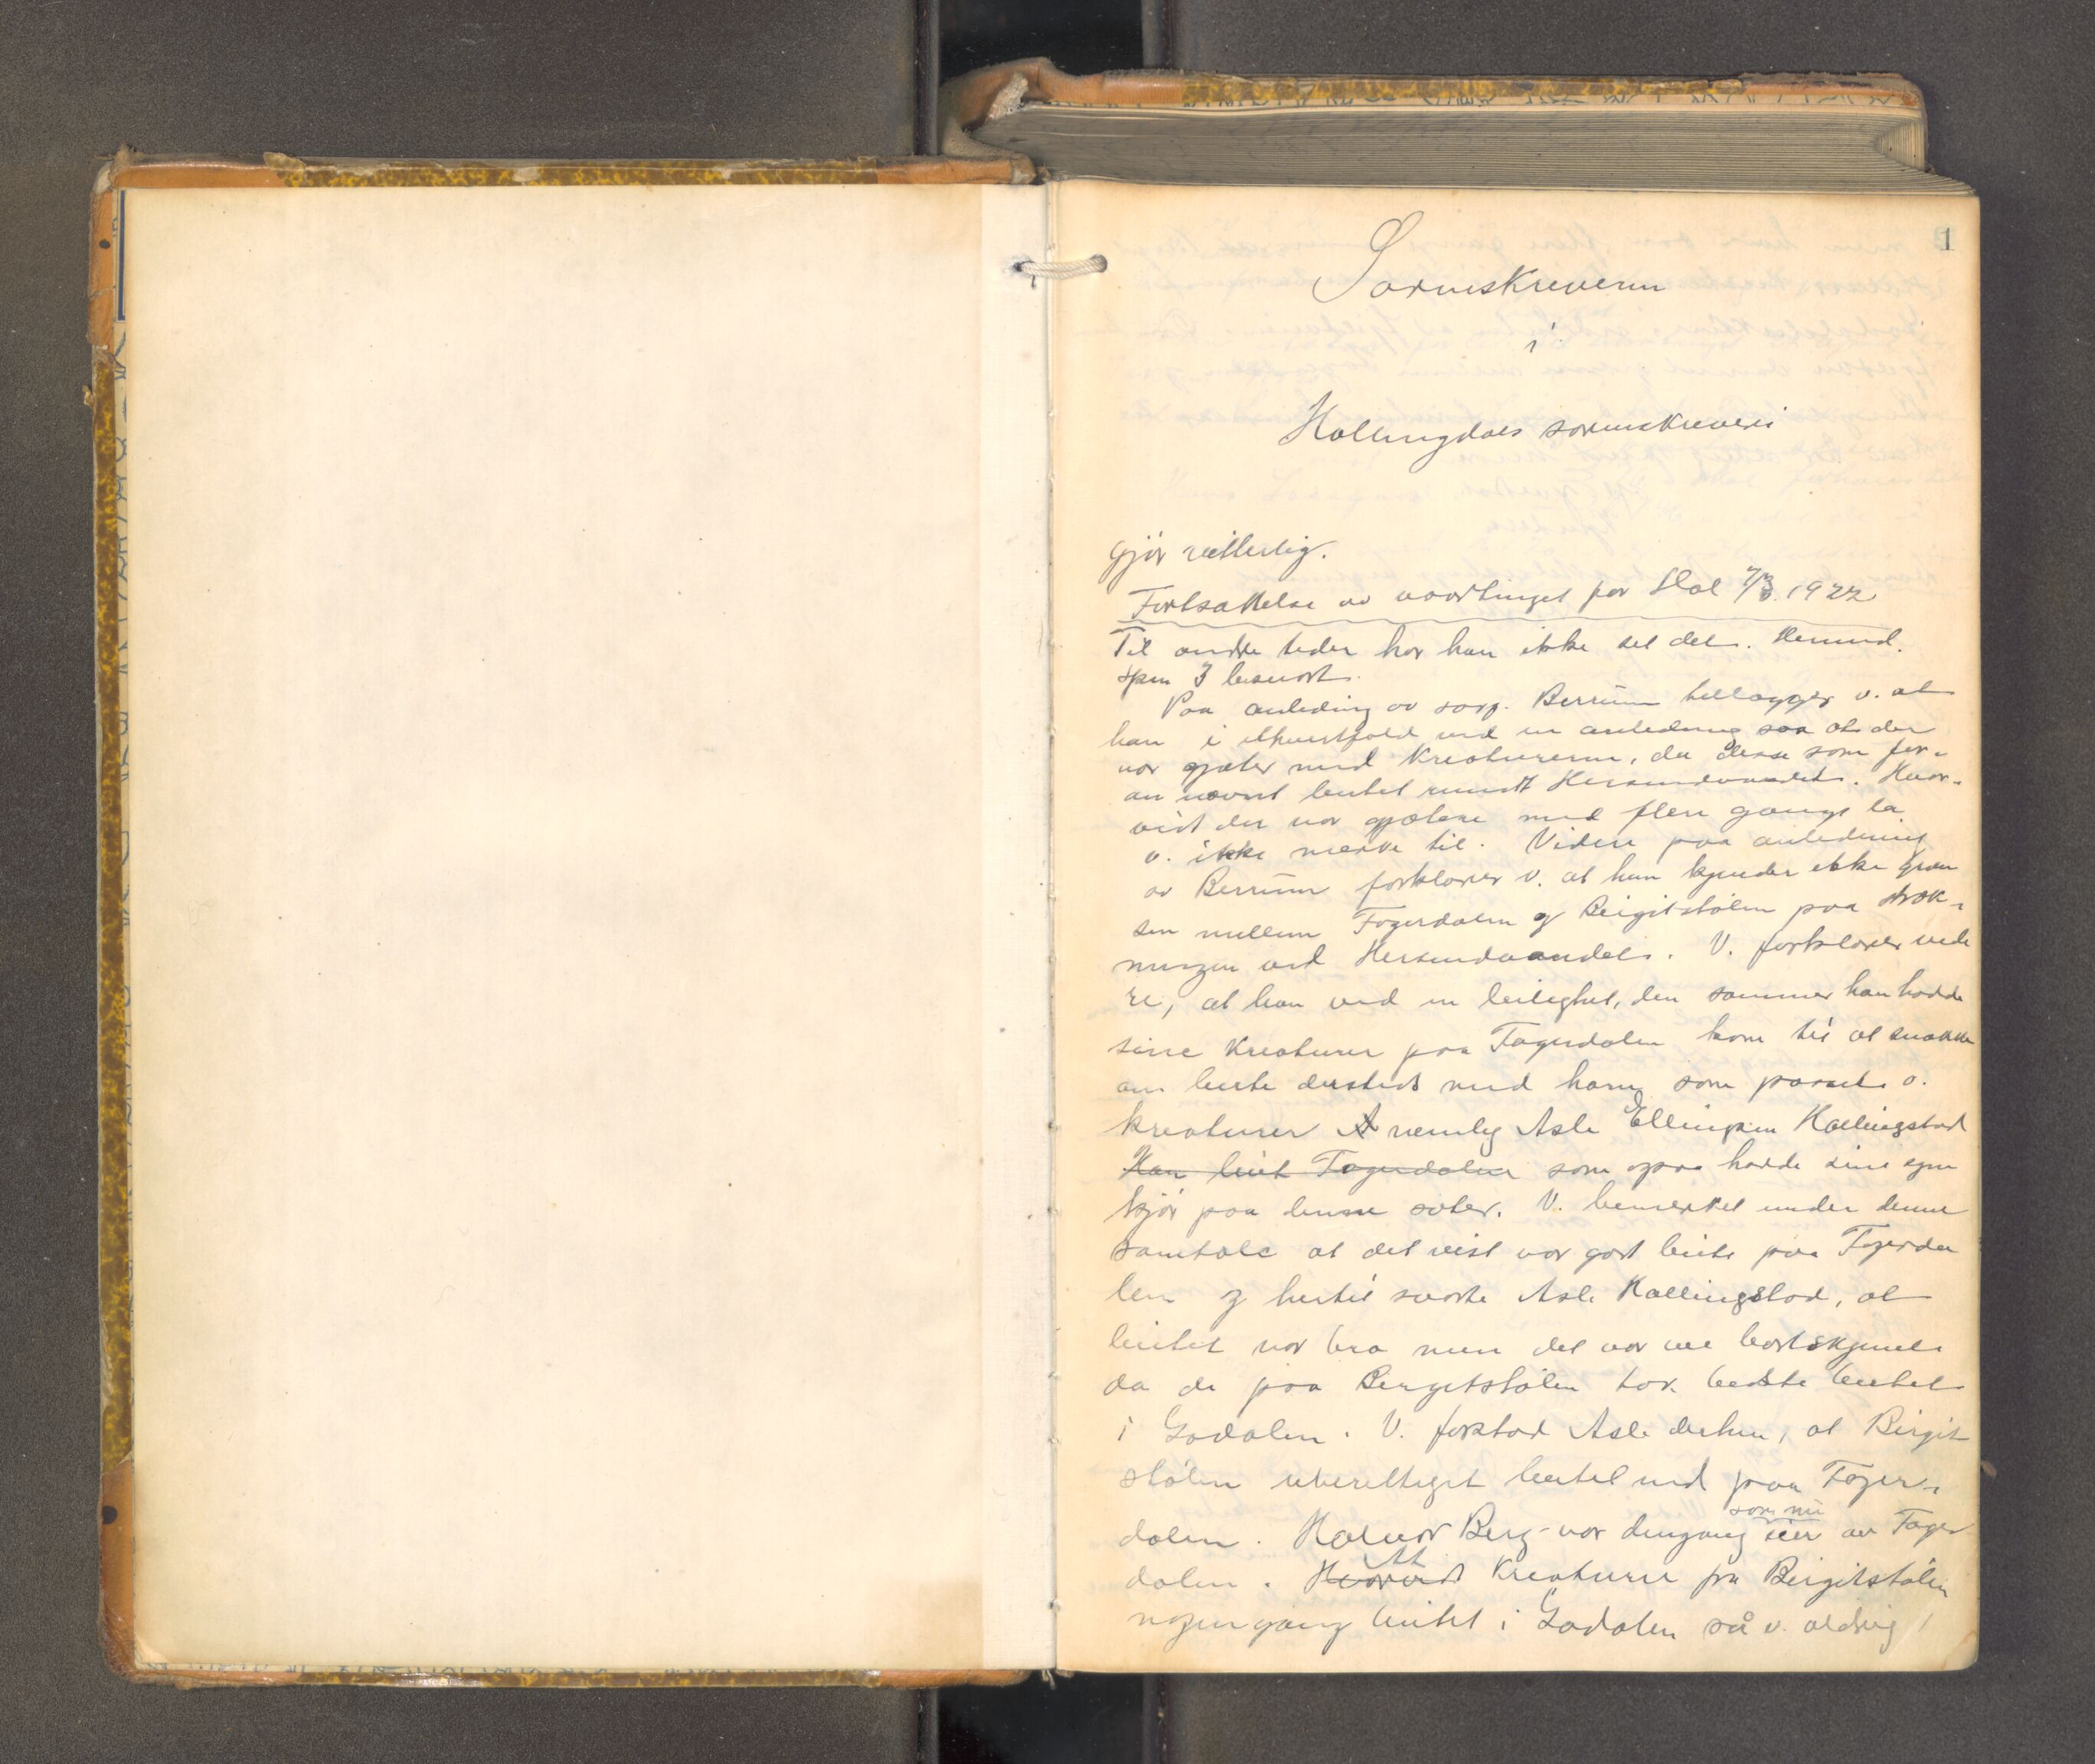 1
Sorenskriveren
i
Hallingdals sorenskriveri
gjör vitterlig.
Fortsættelse av vaartinget for Hol 7/3 1922
Til andre tider har han ikke set det. Hemsed.
spm 3 besvart.
Paa anledning av sorf. Berrum tillægger v. at
han i ethvertfald ved en anledning saa at der
var gjæter med kreaturerne, da disse som for-
an nævnt beitet rundt Hersendvandet. Hvor-
vidt der var gjætere med flere gange la
v. ikke merke til. Videre paa anledning
av Berrum forklarer v. at han kjender ikke græn
sen mellem Fagerdalen og Birgitstölen paa stræk-
ningen ved Hersendvandet. V. forklarer vide
re, at han ved en leilighet, den sommer han hadde
sine kreaturer paa Fagerdalen kom til at snakke
om beite dersteds med ham, som passet v.
kreaturer nemlig Asle Ellingsen Hallingstad
Han beit Fagerdalen som ogsaa hadde sine egne
kjör paa denne sæter. V. bemerket under denne
samtale at det vist var godt beite paa Fagerda
len og hertil svarte Asle Hallingstad, at
beitet var bra men det var vel bortskjemt
da de paa Birgitstölen tok bedste beitet
i Godalen. V. forstod Asle derhen, at Birgit
stölen uberettiget beitet ind paa Fager-
dalen. Halvor Berg var dengang som nu eier av Fager
dalen. Hvorvidt At kreaturer fra Birgitstölen
nogengang beitet i Godalen så v. aldrig